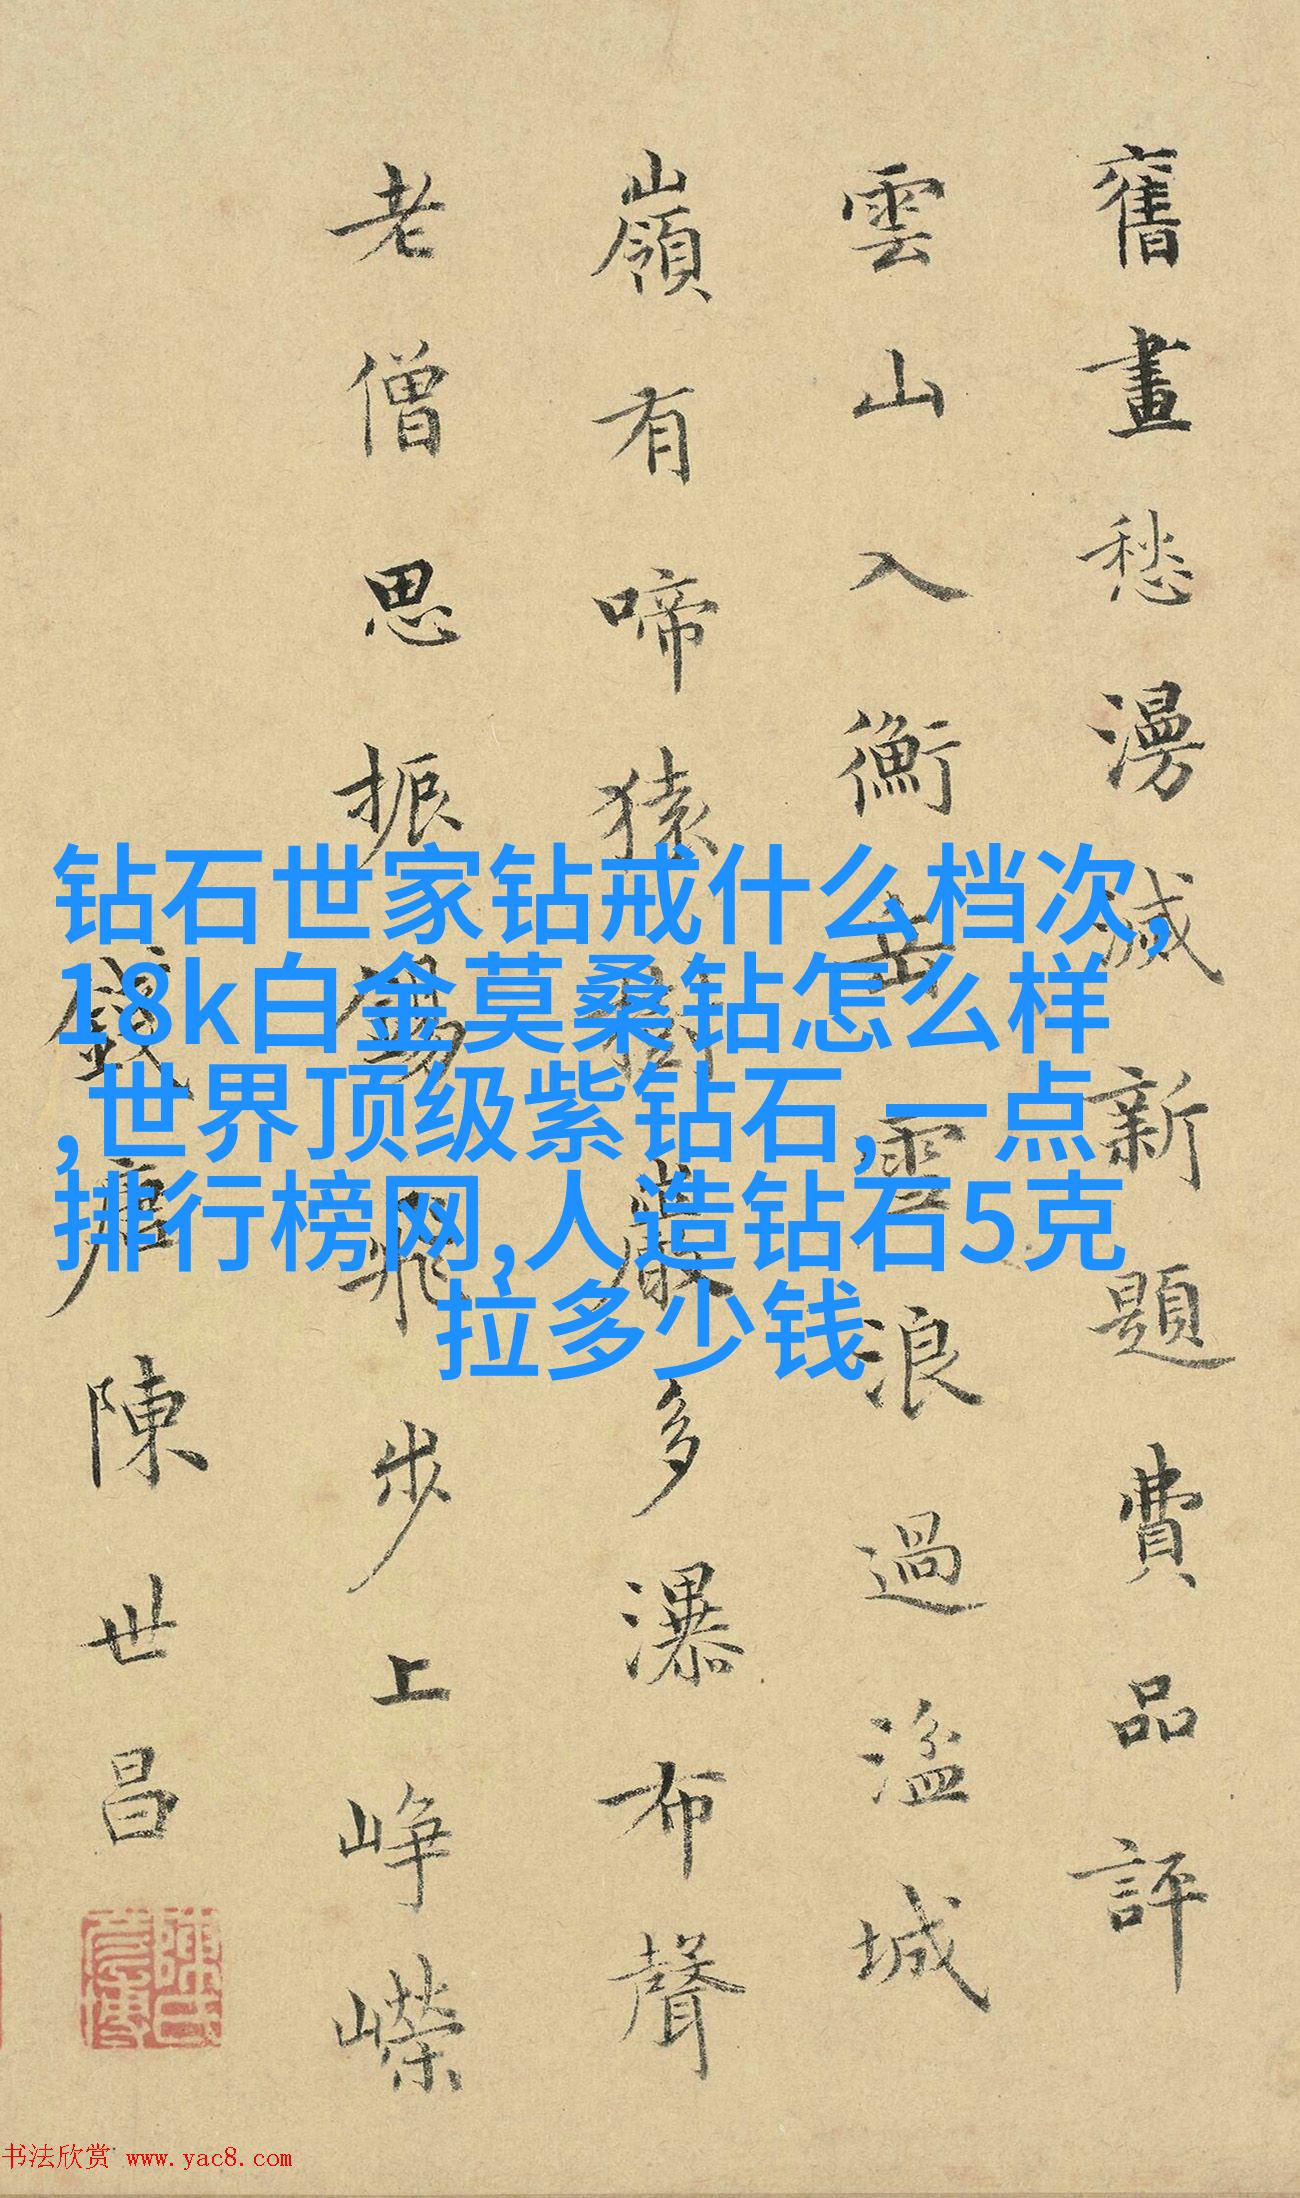 舊畫愁漫滅新題費品評
雲山入衡岳雪浪過湓城
嶺有啼猿樹巖多瀑布聲
老僧思振錫飛步上崢嶸
錢唐陳世昌
钻石世家钻戒什么档次,
18k白金莫桑钻怎么样
,世界顶级紫钻石,一点
排行榜网,人造钻石5克
拉多少钱
书法欣赏 www.yac8.com